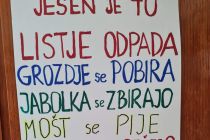 JESEN JE TU
LISTJE ODPADA
GROZDJE se POBIRA
JABOLKA se ZBIRAJO
MOŠT se PIJE